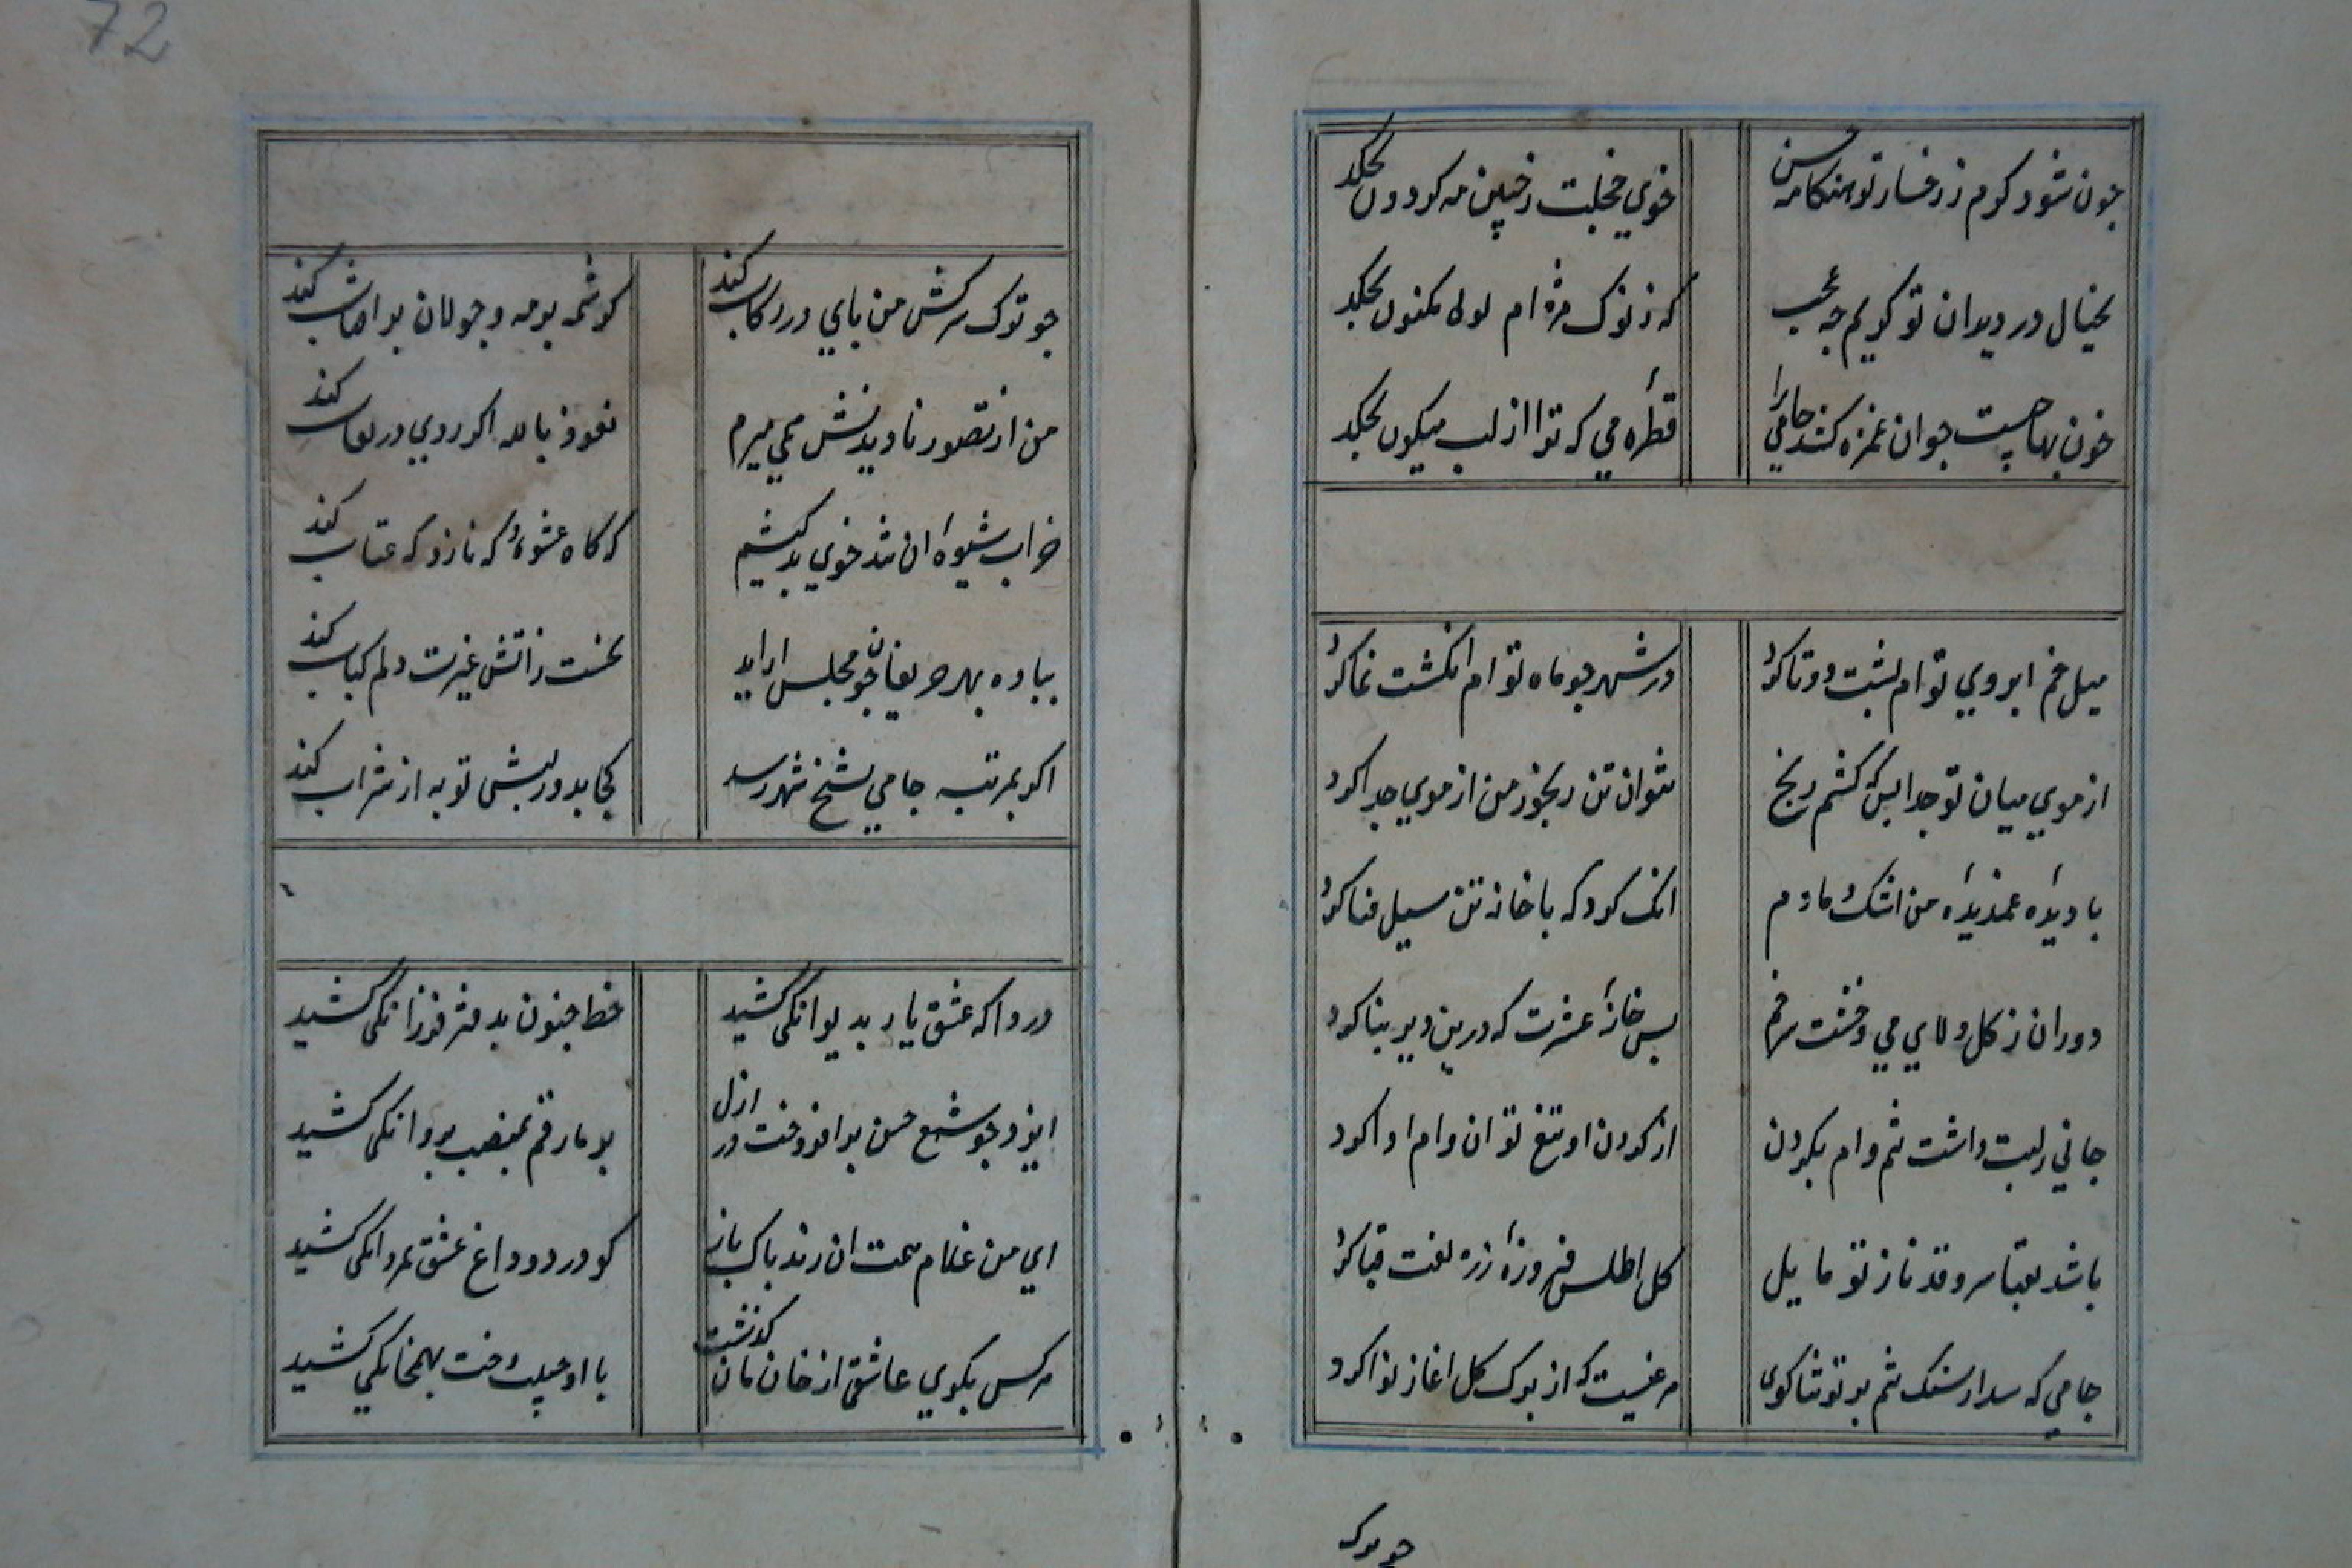 جون شود کرم ز رخسار تو هنکامه حسن
خوي خجلت ز جبین مه کردون بچکد
بخیال در دندان تو کریم چه عجب
که ز نوک مژه ام لولی مکنون بچکد
خون بهاچیست جو ان غمزه کشد جامي را
قطره مي که ترا از لب میکون بچکد
میل خم ابروي توام پشت دوتا کرد
در شهر جو ماه نوام انکشت نما کرد
از موي میان تو جدا بسکه کشم رنج
نتوان تن رنجور من از موي جدا کرد
با دیده غمدیده من اشک دمادم
انک کرد که با خانه تن سیل فنا کرد
دوران ز کل و لاي مي و خشت سر خم
بس خانه عشرت که درین دیر بنا کرد
جاني ز لبت داشت تنم وام بکردن
از کردن او تیغ تو ان وام ادا کرد
باشد بقبا سرو قد ناز تو مایل
کل اطلس فیروزه ز زه لفت قبا کرد
جامي که سد از سنک تنم بر تو ثنا کوی
مرغیست که از برک کل اغاز نوا کرد
جو ترک
72
جو ترک سرکش من باي در رکاب کند
کرشمه بر مه و جولان بر افتاب کند
من از تصور نادیدنش همي میرم
نعوذ بالله اکر روي در نقاب کند
خراب شیوه ان تند خوي بدکیشم
که کاه عشوه و که ناز و که عتاب کند
بباده بهر حریفان جو مجلس اراید
نخست ز اتش غیرت دلم کباب کند
اکر بمرتبه جامي شیخ شهر رسد
کجا بدور لبش توبه از شراب کند
دردا که عشق یار بدیوانکی کشید
خط جنون بدفتر فرزانکی کشید
ایزد جو شمع حسن بر افروخت در ازل
بر ما رقم بمنصب پروانکی کشید
اي من غلام همت ان رند پاک باز
کو درد و داغ عشق بمردانکی کشید
هر کس بکوي عاشقی از خان مان کذشت
با او جنیت رخت بهمخانکي کشید